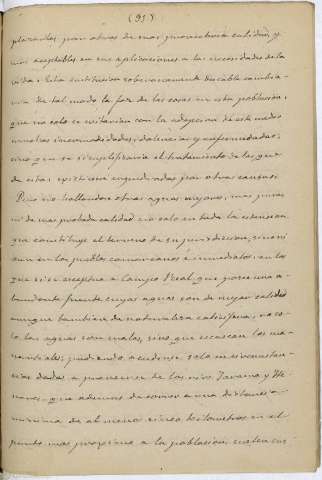 (91)
plazarlas por otras de mas provechosa calidad, y
mas aceptables en sus aplicaciones a las necesidades de la
vida. Esta sustitucion sobre manera deseable cambia-
ria de tal modo la faz de las cosas en esta poblacion,
que no solo se evitarian con la adopcion de este medio
muchas incomodidades, dolencias y enfermedades;
sino que se simplificaria el tratamiento de las que
de estas existiesen engendradas por otras causas.
Pero no hallandose otras aguas mejores, mas puras
ni de mas probada calidad no solo en toda la estension
que constituye el termino de su jurisdiccion, sino ni
aun en los pueblos comarcanos é inmediatos, en los
que si se esceptua a Campo Real que posee una a-
bundante fuente cuyas aguas son de mejor calidad
aunque tambien de naturaleza caliza, no so-
lo las aguas son malas, sino que escasean los ma-
nantiales; pudiendo acudirse solo en circunstan-
cias dadas a proveerse de los rios Jarama y He-
nares que ademas de correr a una distancia
minima de al menos cinco kilometros en el
punto mas proximo a la poblacion